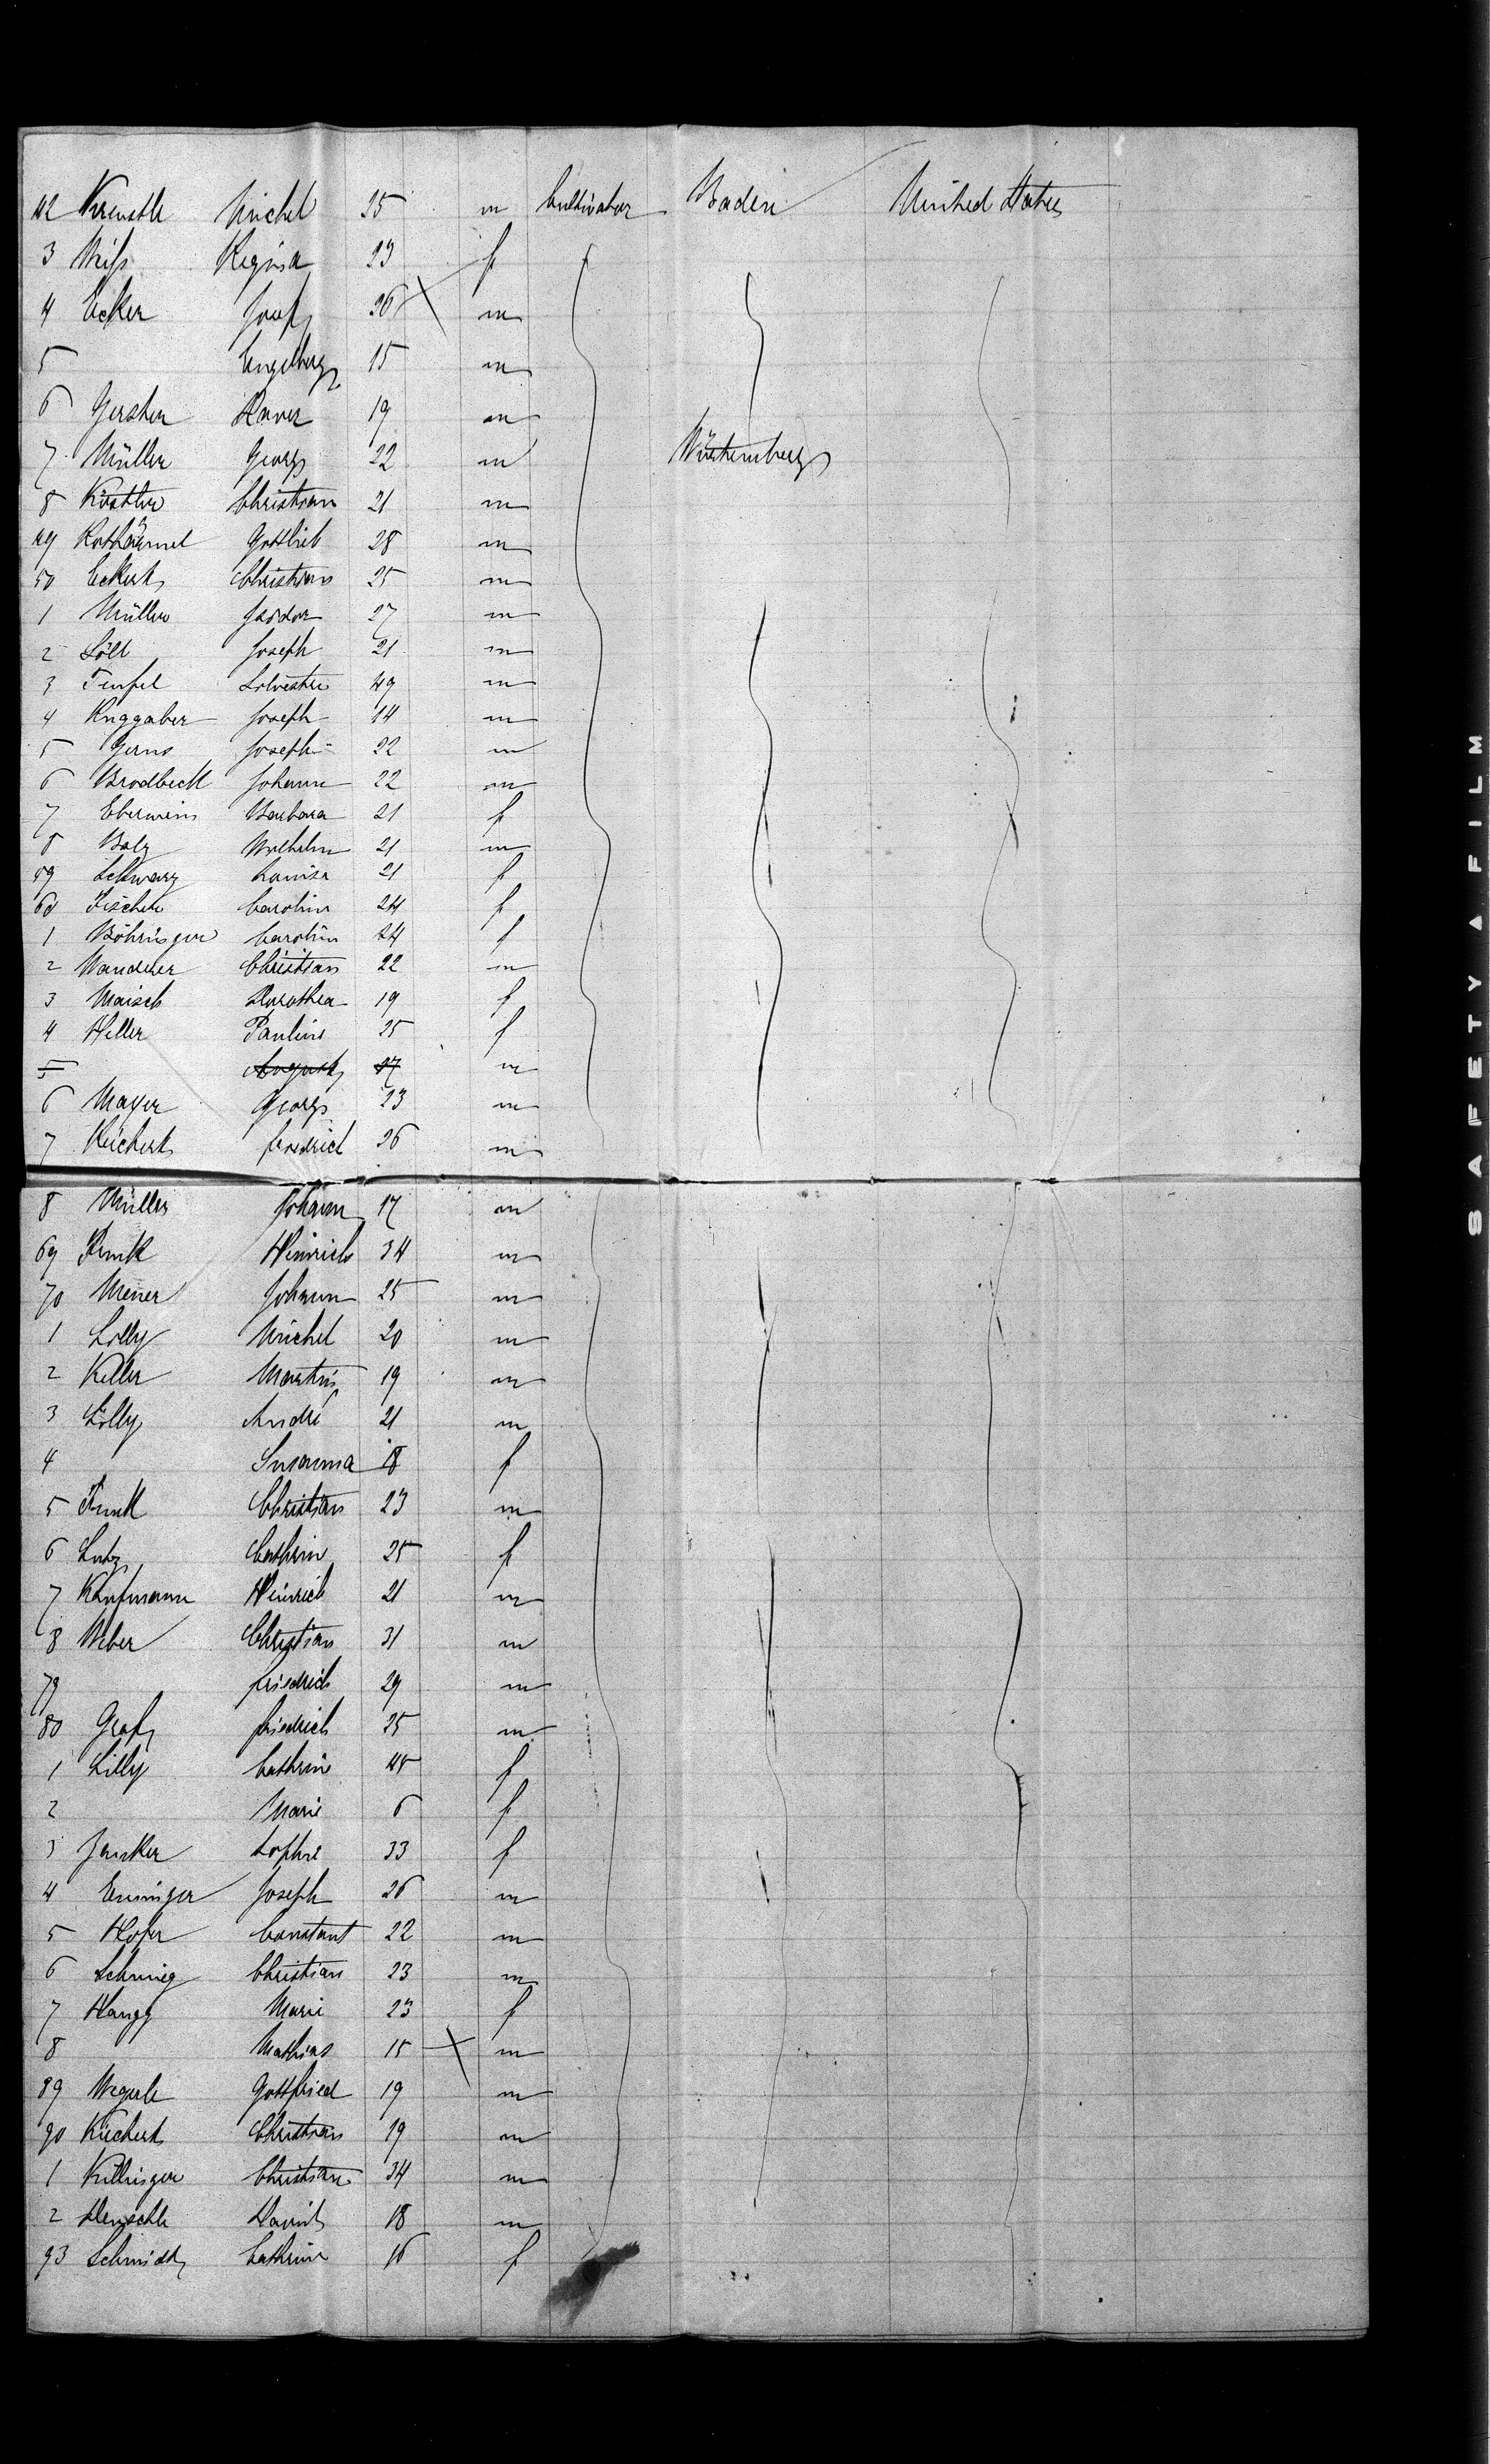 42 Michel 25 m Cultivator Baden United States
3 Regina 23 f
4 Ecker Josef 26 m
5 15 m
6 Gerster Xaver 19 m
7 Müller Georg 22 m Würtemberg
8 Köstler Christian 21 m
49 Rothärmel Gottlieb 28 m
50 Eckert Christian 25 m
1 Müller Isidor 27 m
2 Löll Joseph 21 m
3 Teufel Silvester 49 m
4 Ruggaber Joseph 14 m
5 Joseph 22 m
6 Brodbeck Johann 22 m
7 Eberwein Barbara 21 f
8 Balz Wilhelm 21 m
59 Schwarz Louisa 21 f
60 Fischer Carolin 24 f
1 Böhringer Carolin 24 f
2 Wanderer Christian 22 m
3 Maisch Dorothea 19 f
4 Heller Pauline 25 f
5 August 27 m
6 Mayer Georg 23 m
7 Küchert Friedrich 26 m
8 Müller Johann 17 m
69 Funk Heinrich 34 m
70 Johann 25 m
1 Lilly Michel 20 m
2 Keller Martin 19 m
3 Lilly André 21 m
4 Susanna 18 f
5 Funk Christian 23 m
6 Lutz Cathrin 25 f
7 Kaufmann Heinrich 21 m
8 Weber Christian 31 m
79 friedrich 29 m
80 Graf friedrich 25 m
1 Lilly Cathrine 45 f
2 Marie 6 f
3 Junker Sophie 33 f
4 Enninger Joseph 26 m
5 Hofer Constant 22 m
6 Schmieg Christian 23 m
7 Haugg Marie 23 f
8 Mathias 15 m
89 Wegerle Gottfried 19 m
90 Küchert Christian 19 m
1 Killinger Christian 34 m
2 David 18 m
93 Schmidt Cathrine 16 f
SAFETY A FILM